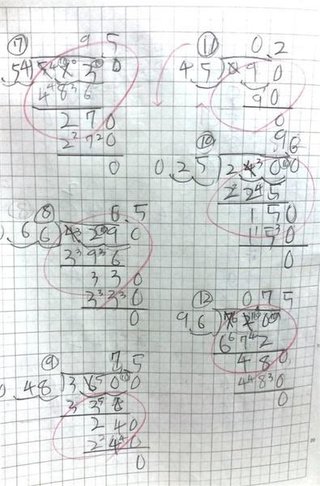 ⑦ 9 5
54
4 8 6
2 7 0
2 7 0
0
⑧ 6.5
66 4 2 9 0
3 9 6
3 3 0
3 3 0
0
⑨ 7.5
48 3 6 0 0
3 3 6
2 4 0
2 4 0
0
⑪ 0.2
4 5 9 0
9 0
0
⑩ 9.6
0.25 2 4 0 0
2 2 5
1 5 0
1 5 0
0
⑫ 0.75
96 7 2 0
6 7 2
4 8 0
4 8 0
0